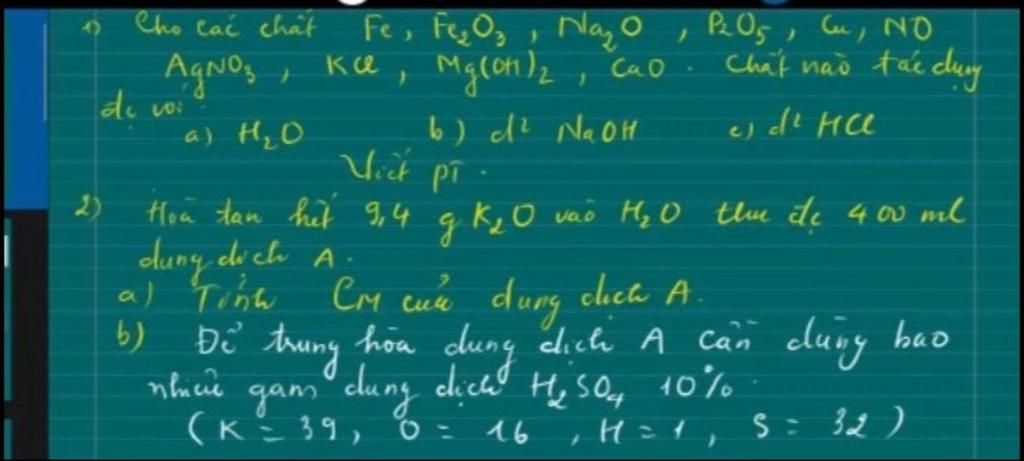 1) Cho các chất Fe, Fe₂O₃, Na₂O, P₂O₅, Cu, NO
AgNO₃, KCl, Mg(OH)₂, CaO. Chất nào tác dụng
đc với
a) H₂O b) d² NaOH c) d² HCl
Viết pT.
2) Hoà tan hết 9,4 g K₂O vào H₂O thu đc 400 ml
dung dịch A.
a) Tính CM của dung dịch A.
b) Để trung hòa dung dịch A cần dùng bao
nhiêu gam dung dịch H₂SO₄ 10%.
(K = 39, O = 16, H = 1, S = 32)